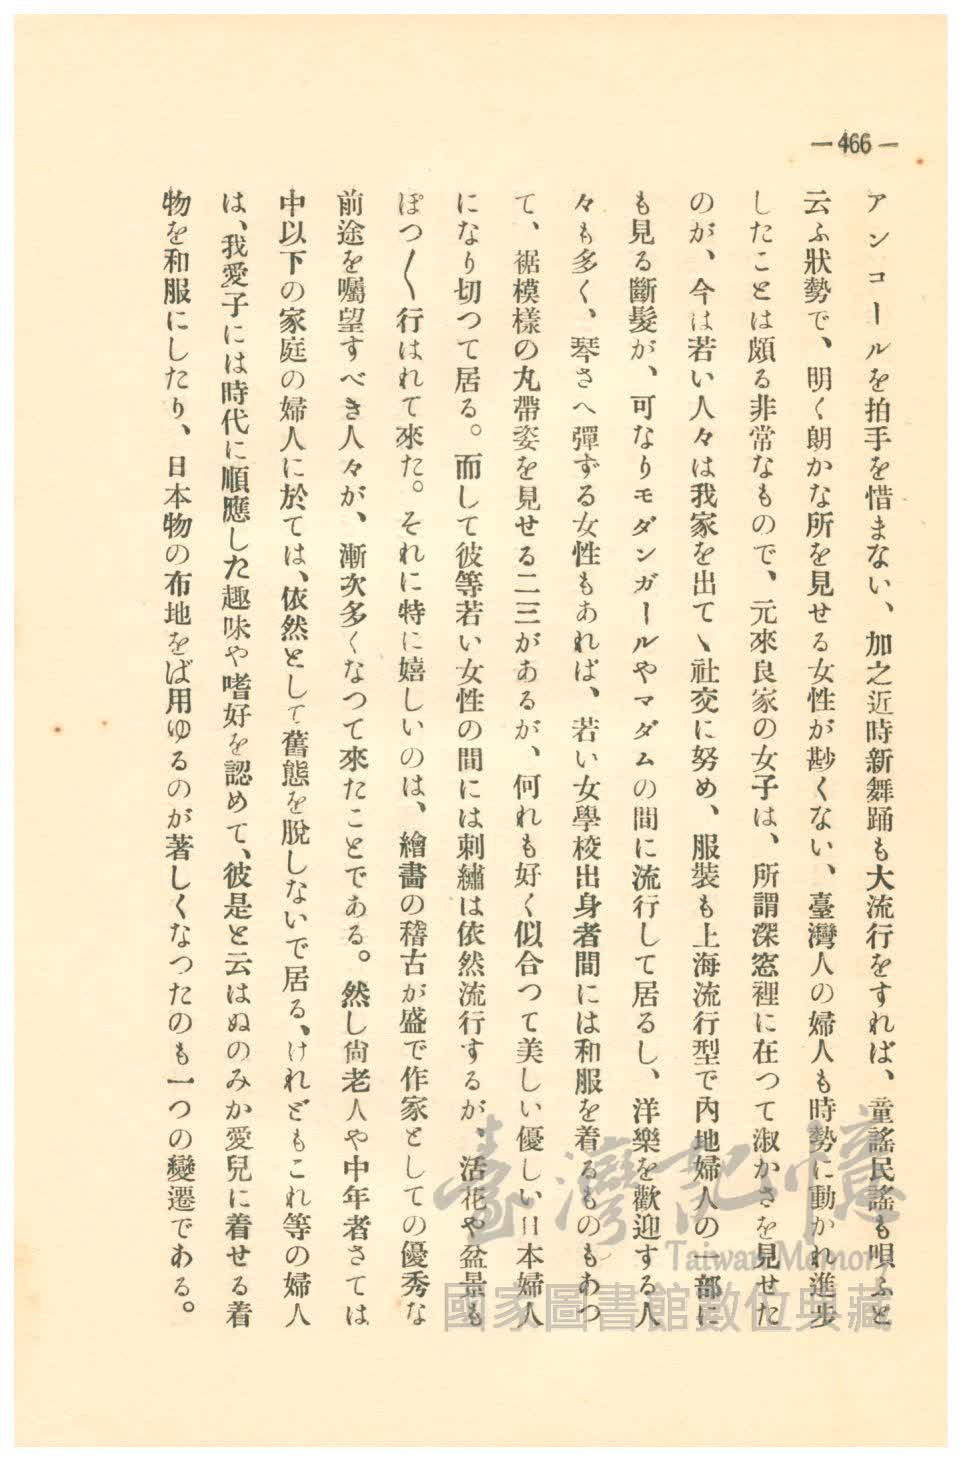 —466—
アンコールを拍手を惜まない、加之近時新舞踊も大流行をすれば、童謠民謠も唄ふと
云ふ狀勢で、明く朗かな所を見せる女性が尠くない、臺灣人の婦人も時勢に動かれ進步
したことは頗る非常なもので、元來良家の女子は、所謂深窓裡に在つて淑かさを見せた
のが、今は若い人々は我家を出てゝ社交に努め、服裝も上海流行型で內地婦人の一部に
も見る斷髮が、可なりモダンガールやマダムの間に流行して居るし、洋樂を歡迎する人
々も多く、琴さへ彈ずる女性もあれば、若い女學校出身者間には和服を着るものもあつ
て、裾模樣の丸帶姿を見せる二三があるが、何れも好く似合つて美しい優しい日本婦人
になり切つて居る。而して彼等若い女性の間には刺繡は依然流行するが、活花や盆景も
ぽつ〱行はれて來た。それに特に嬉しいのは、繪畵の稽古が盛で作家としての優秀な
前途を囑望すべき人々が、漸次多くなつて來たことである。然し尙老人や中年者さては
中以下の家庭の婦人に於ては、依然として舊態を脫しないで居る、けれどもこれ等の婦人
は、我愛子には時代に順應した趣味や嗜好を認めて、彼是と云はぬのみか愛兒に着せる着
物を和服にしたり、日本物の布地をば用ゆるのが著しくなつたのも一つの變遷である。
臺灣記憶
Taiwan Memory
國家圖書館數位典藏